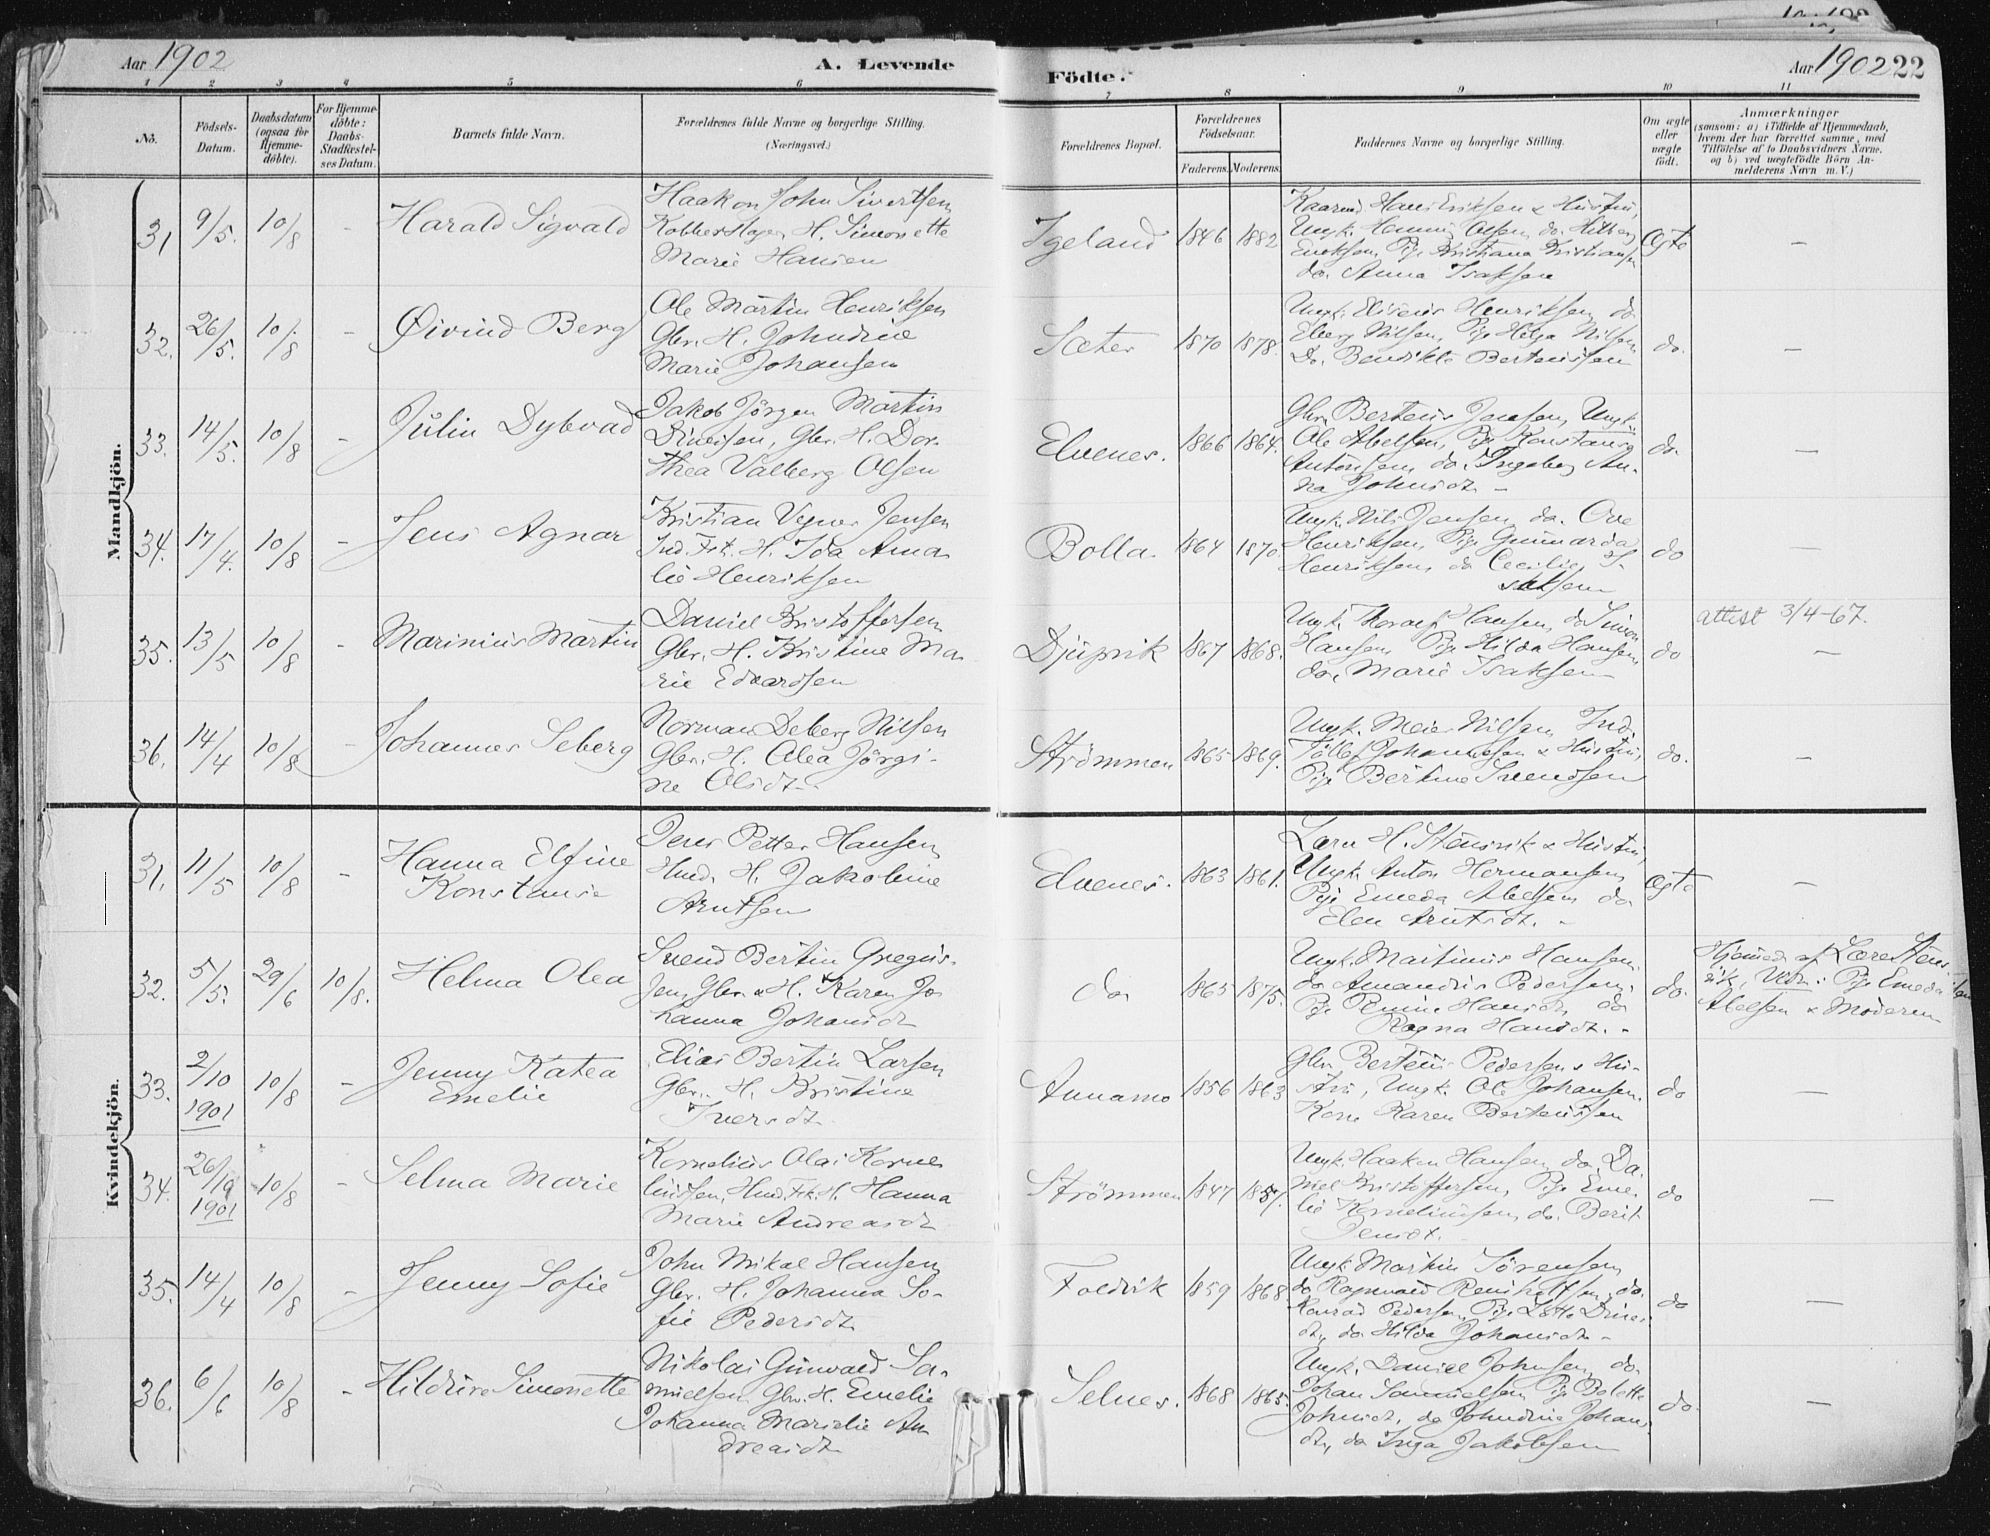 Aar 1902
A. Levende
Födte.
Aar 1902 22
1 2 3 4 5 6 7 8 9 10 11
No.
Födsels-
Datum.
Daabsdatum
(ogsaa for
Hjemme-
döbte).
For Hjemme-
döbte:
Daabs-
Stadfæstel-
ses Datum.
Barnets fulde Navn.
Forældrenes fulde Navne og borgerlige Stilling.
(Næringsvei.)
Forældrenes Bopæl.
Forældrenes
Födselsaar.
Faderens. Moderens.
Faddernes Navne og borgerlige Stilling.
Om ægte
eller
uægte
födt.
Anmærkninger
(saasom: a) i Tilfælde af Hjemmedaab,
hvem der har forrettet samme, med
Tilföielse af to Daabsvidners Navne.
og b) ved uægtefödte Börn An-
melderens Navn m. V.)
Mandkjön.
31 9/5. 10/8 - Harald Sigvald
Haakon John Sivertsen
H. Simonette
Marie Hansen
Igeland 1846 1882
Hans Eriksen & Hustru,
Ungk. Henning Olsen do.
Pige Kristiana Kristiansen
do. Anna Isaksen
Ægte -
32. 26/5. 10/8 - Øivind Berg
Ole Martin Henriksen
Gbr. H. Johndine
Marie Johansen
Sæter 1870 1878.
Ungk. Henriksen do
Eberg Nilsen, Pige Helga Nilsen
Do. Bendikte Berteussen
do. -
33. 14/5. 10/8 - Julin Dybvad
Jakob Jörgen Martin
Dinesen, Gbr. H. Dor-
thea Valberg Olsen
Elvenes. 1866 1864.
Gbr. Berteus Jensen, Ungk.
Ole Abelsen, Pige Konstanse
Antonsen, do. Ingeborg An-
na Johnsdt. -
do. -
34. 17/4. 10/8 - Jens Agnar
Kristian Vegner Jensen
Ind. Fsk. H. Ida Ama-
lie Henriksen
Bolla. 1864 1870
Ungk. Nils Jensen, do. Ove
Henriksen, Pige Gunnarda
Henriksen, do Cecilie I-
saksen
do -
35. 13/5 10/8 - Marinius Martin
Daniel Kristoffersen
Gbr. H. Kristine Ma-
rie Edvardsen
Djupvik 1867 1868.
Ungk. Thoralf Hansen, do Simon
Hansen, Pige Hilda Hansen,
do. Marie Isaksen
do
attest 3/4-67.
-
36. 14/4 10/8 - Johannes Seberg
Norman Deberg Nilsen
Gbr. H. Olea Jörgi-
ne Olsdt.
Strömmen 1865 1869.
Ungk. Meier Nilsen, Ind.
Tollef Johannesen & Hustru,
Pige Bertine Svendsen
do. -
Kvindekjön.
31. 11/5 10/8 - Hanna Elfine
Konstanse
Jens Petter Hansen
Hmd. H. Jakobine
Arntsen
Elvenes. 1863 1861.
Lærer H. Stensvik & Hustru,
Ungk. Anton Hermansen,
Pige Emeda Abelsen do.
Elen Arntsdt. -
Ægte -
32. 5/5. 29/6 10/8. Helma Olea
Svend Bertin Gregus-
sen, Gbr. & H. Karen Jo-
hanna Johansdt
do. 1865 1875.
Ungk. Martinus Hansen,
do Amandus Pedersen,
Pige Hansdt, do
Ragna Hansdt. -
do.
Hjemmed. af Lærer Stens-
vik, Vidn.: Pige Emeda
Abelsen & Moderen
33. 2/10 1901 10/8 - Jenny Katea
Emelie
Elias Bertin Larsen
Gbr. H. Kristine
Iversdt.
Annamo 1856 1863
Gbr. Berteus Pedersen & Hu-
stru, Ungk. Ole Johansen,
Kone Karen Berteussen
do -
34. 26/10 1901 10/8 - Selma Marie
Kornelius Olai Korne-
liussen, Hmd. Fsk. H. Hanna
Marie Andreasdt.
Strömmen 1847 1857.
Ungk. Haakon Hansen, do. Da-
niel Kristoffersen, Pige Eme-
lie Korneliussen, do. Berit
Jensdt. -
do -
35. 14/4 10/8 - Jenny Sofie
John Mikal Hansen
Gbr. H. Johanna So-
fie Pedersdt.
Foldvik 1859 1868
Ungk. Martin Sörensen
do Ragnvald do.
Konrad Pedersen, Pige Lotte Dines-
dt, do Hilda Johansdt. -
do -
36. 6/6 10/8 - Hildur Simonette
Nikolai Gunvald Sa-
muelsen, Gbr. H. Emelie
Johanna Marselie An-
dreasdt.
Selnes. 1868 1865.
Ungk. Daniel Johnsen, do.
Johan Samuelsen, Pige Bolette
Johnsdt, do Johndine Johans-
dt, do Inga Jakobsen
do. -